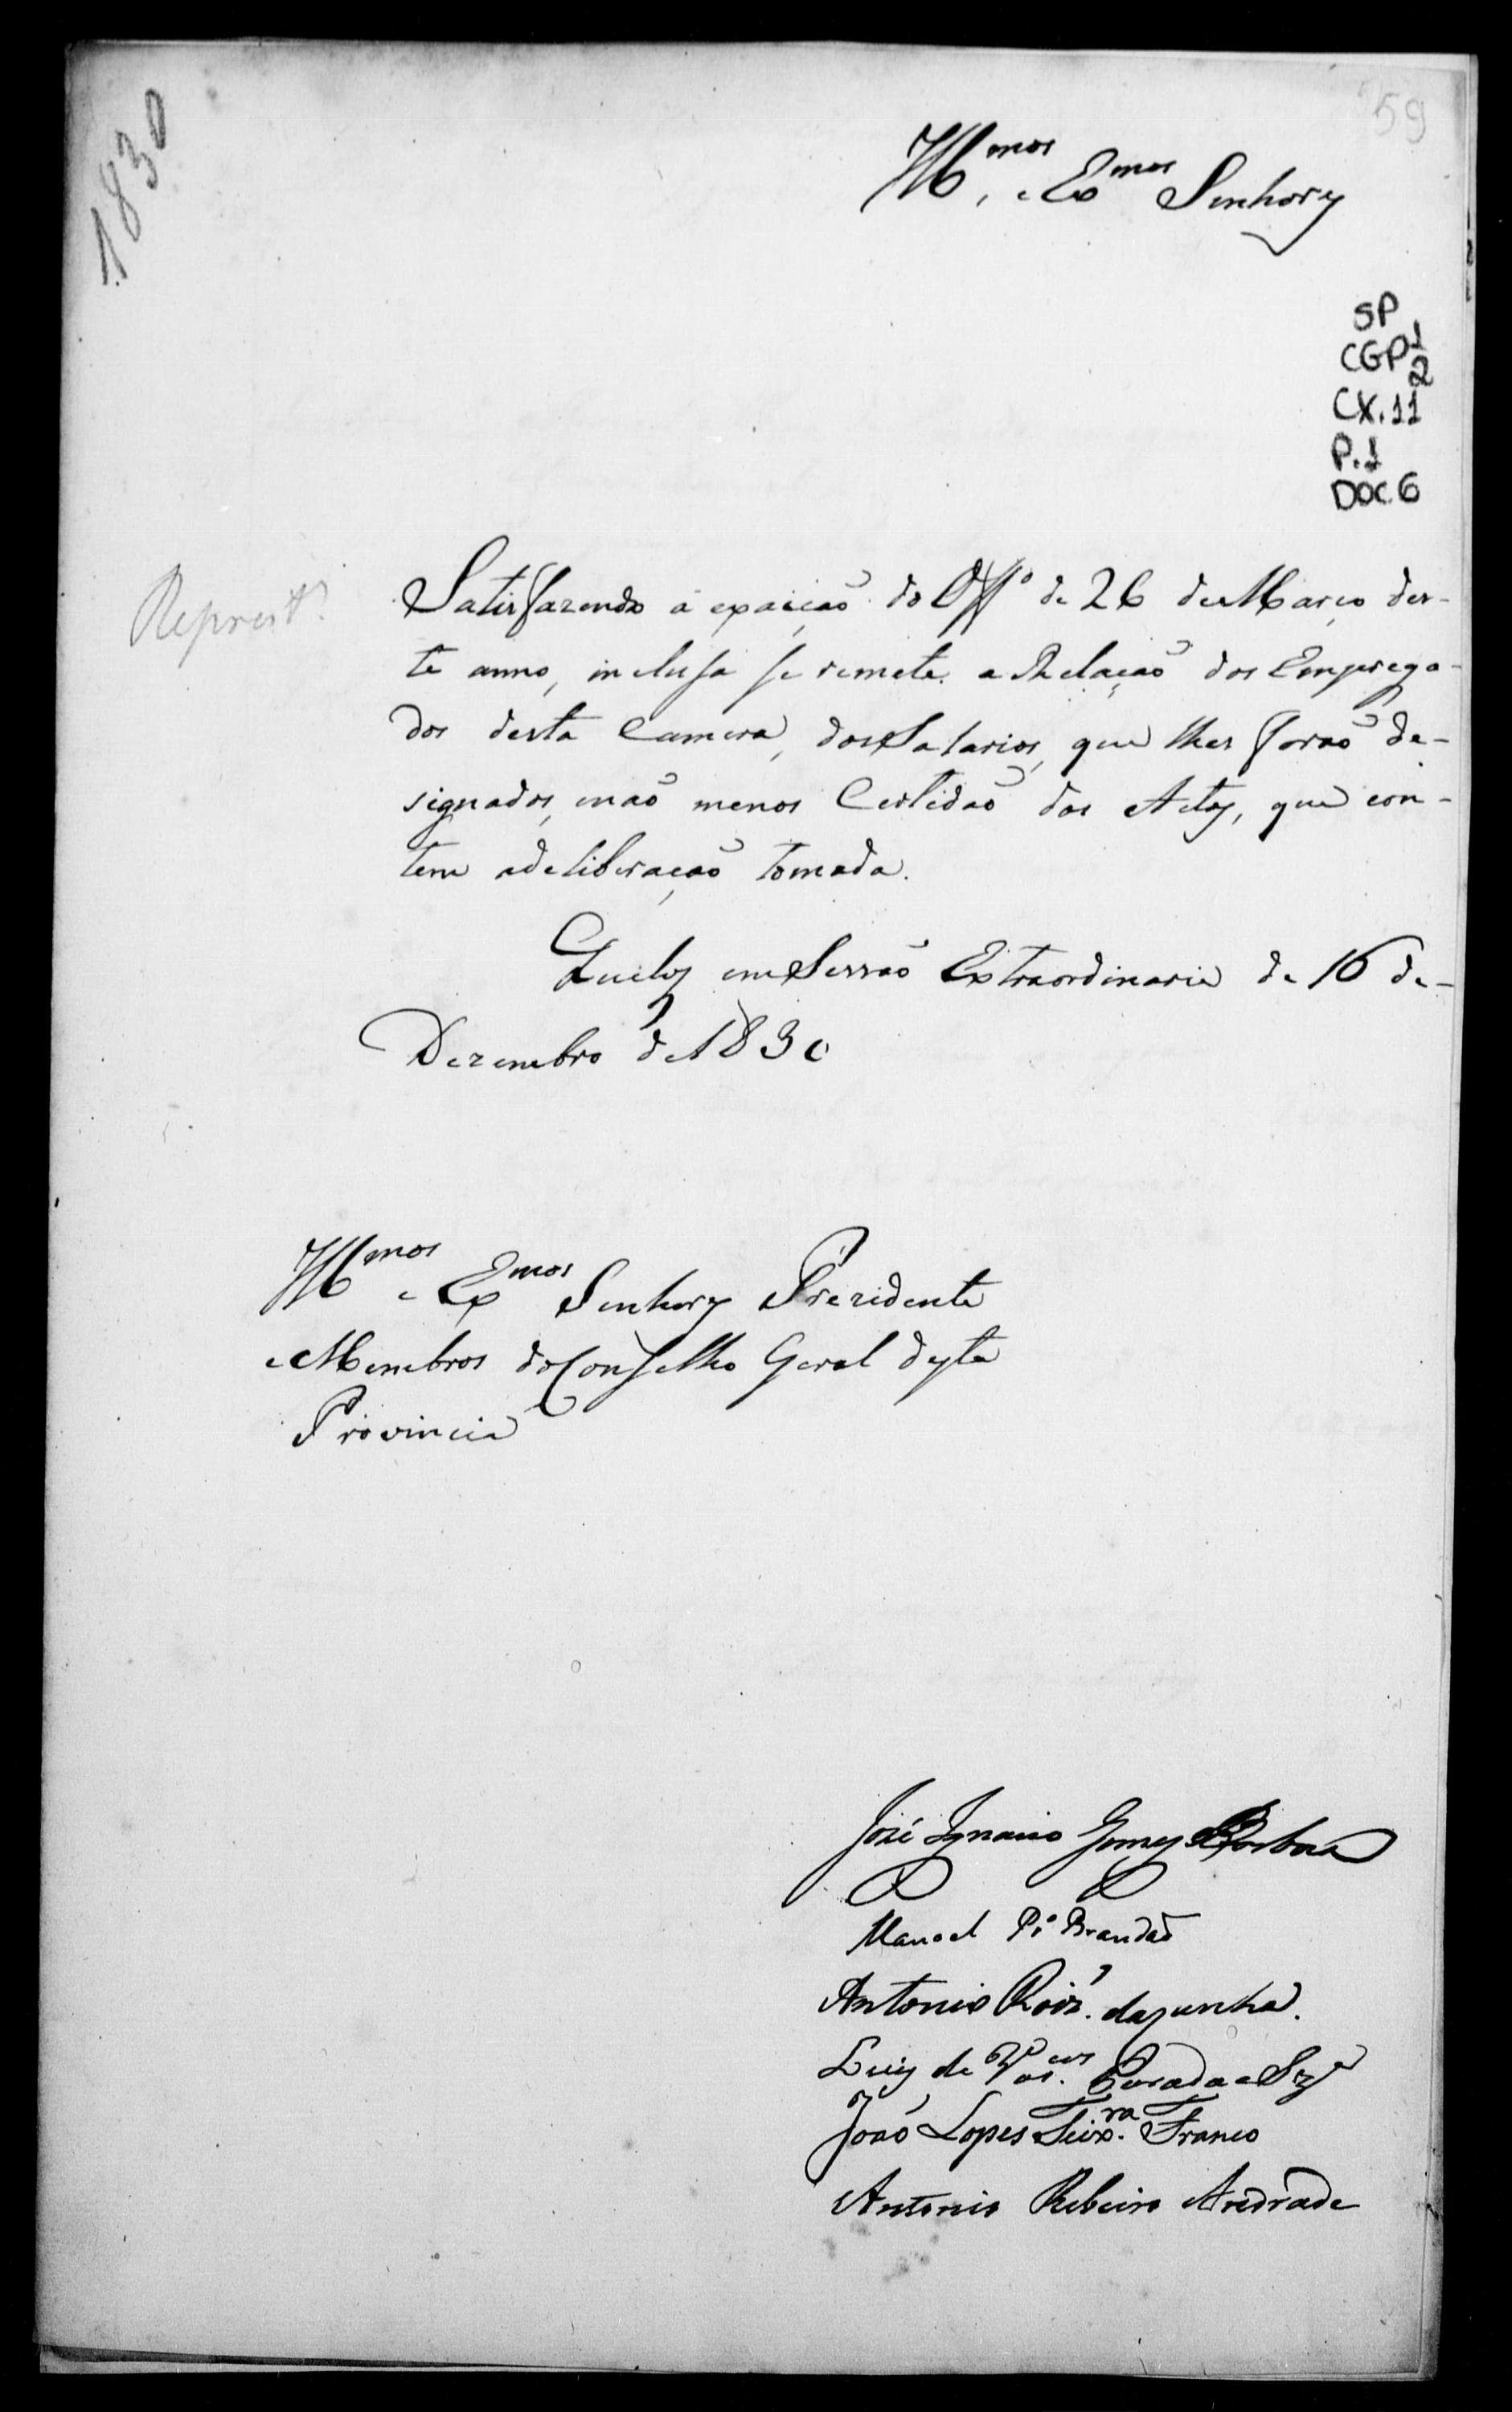 1830
59
Illmos, e Exmos Senhores
SP
CGP1
2
CX.11
P.1
DOC.6
Satisfazendo a exaicão do Offo de 26 de Março des-
te anno, inclusa se remete a Relação dos Emprega-
dos desta Camera, dos Salarios, que lhes forão de-
signados, e não menos Certidão das Actas, que con-
tem a deliberação tomada.
Queluz em Sessão Extraordinaria de 16 de-
Dezembro de 1830
Illmos e Exmos Senhores Prezidente
e Membros do Conselho Geral desta
Provincia
José Ignacio Gomes Barboza
Manoel Po Brandão
Antonio Roiz. da Cunha.
Luiz de Vascos. Parada e Sza
João Lopes Teixra. Franco
Antonio Ribeiro Andrade